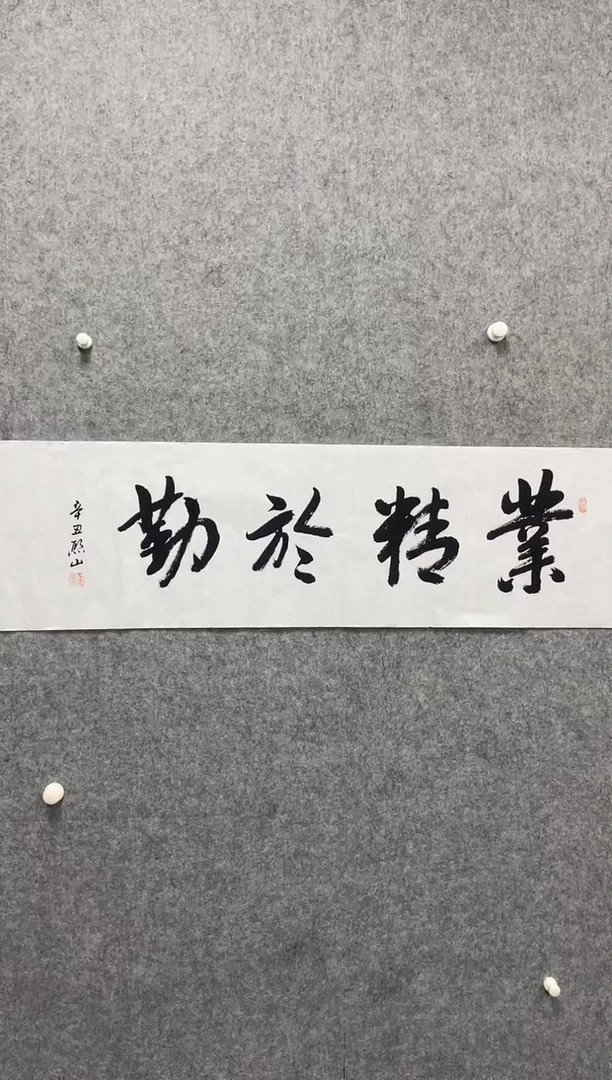 業精於勤
辛丑熙山